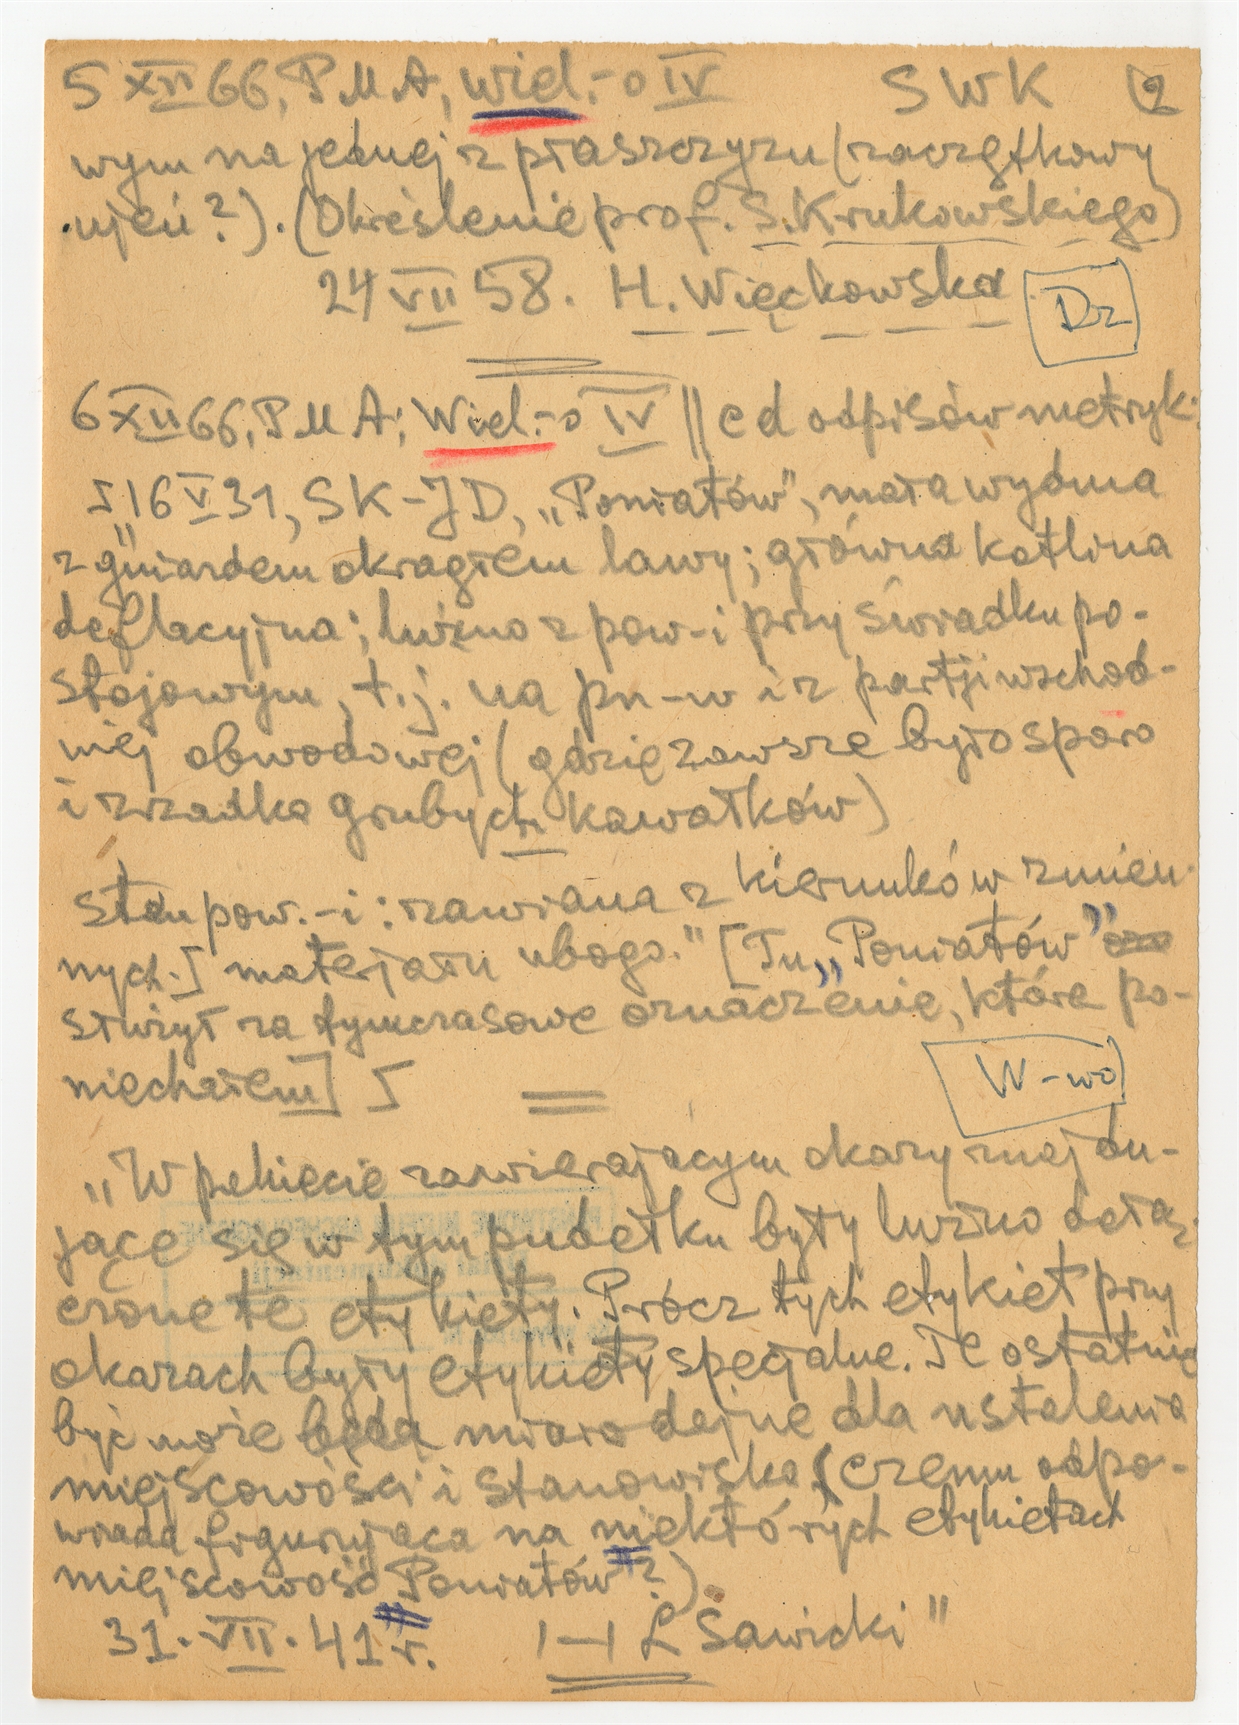 5 XII 66, PMA, Wiel.-o IV SWK 2
wym na jednej z płaszczyzn (zaczątkowy
.ujeń?). (Określenie prof. S. Krukowskiego)
24 VII 58. H. Więckowska Dz
6 XII 66, PMA; Wiel.-o IV || cd odpisów metryk:
16 V 31, SK-JD, „Poniatów", mała wydma
z gniazdem okrągłem ławy; główna kotlina
deflacyjna; luźno z pow-i przy świadku po-
stojowym, t.j. na pn-w i z partji wschod-
niej obwodowej (gdzie zawsze było sporo
i zrzadka grubych kawałków)
Stan pow.-i: zawiana z kierunków zmien-
nych.] materjału ubogo." [Tu „Poniatów"
służył za tymczasowe oznaczenie, które po-
niechałem]
W-wo
„W pakiecie zawierającym okazy znajdu-
jące się w tym pudełku były luźno dołą-
czone te etykiety. Prócz tych etykiet przy
okazach były etykiety specjalne. Te ostatnie
być może będą miarodajne dla ustalenia
miejscowości i stanowiska (czemu odpo-
wiada figurująca na niektórych etykietach
miejscowość Poniatów"?).
31. VII. 41 r. /-/ L Sawicki"